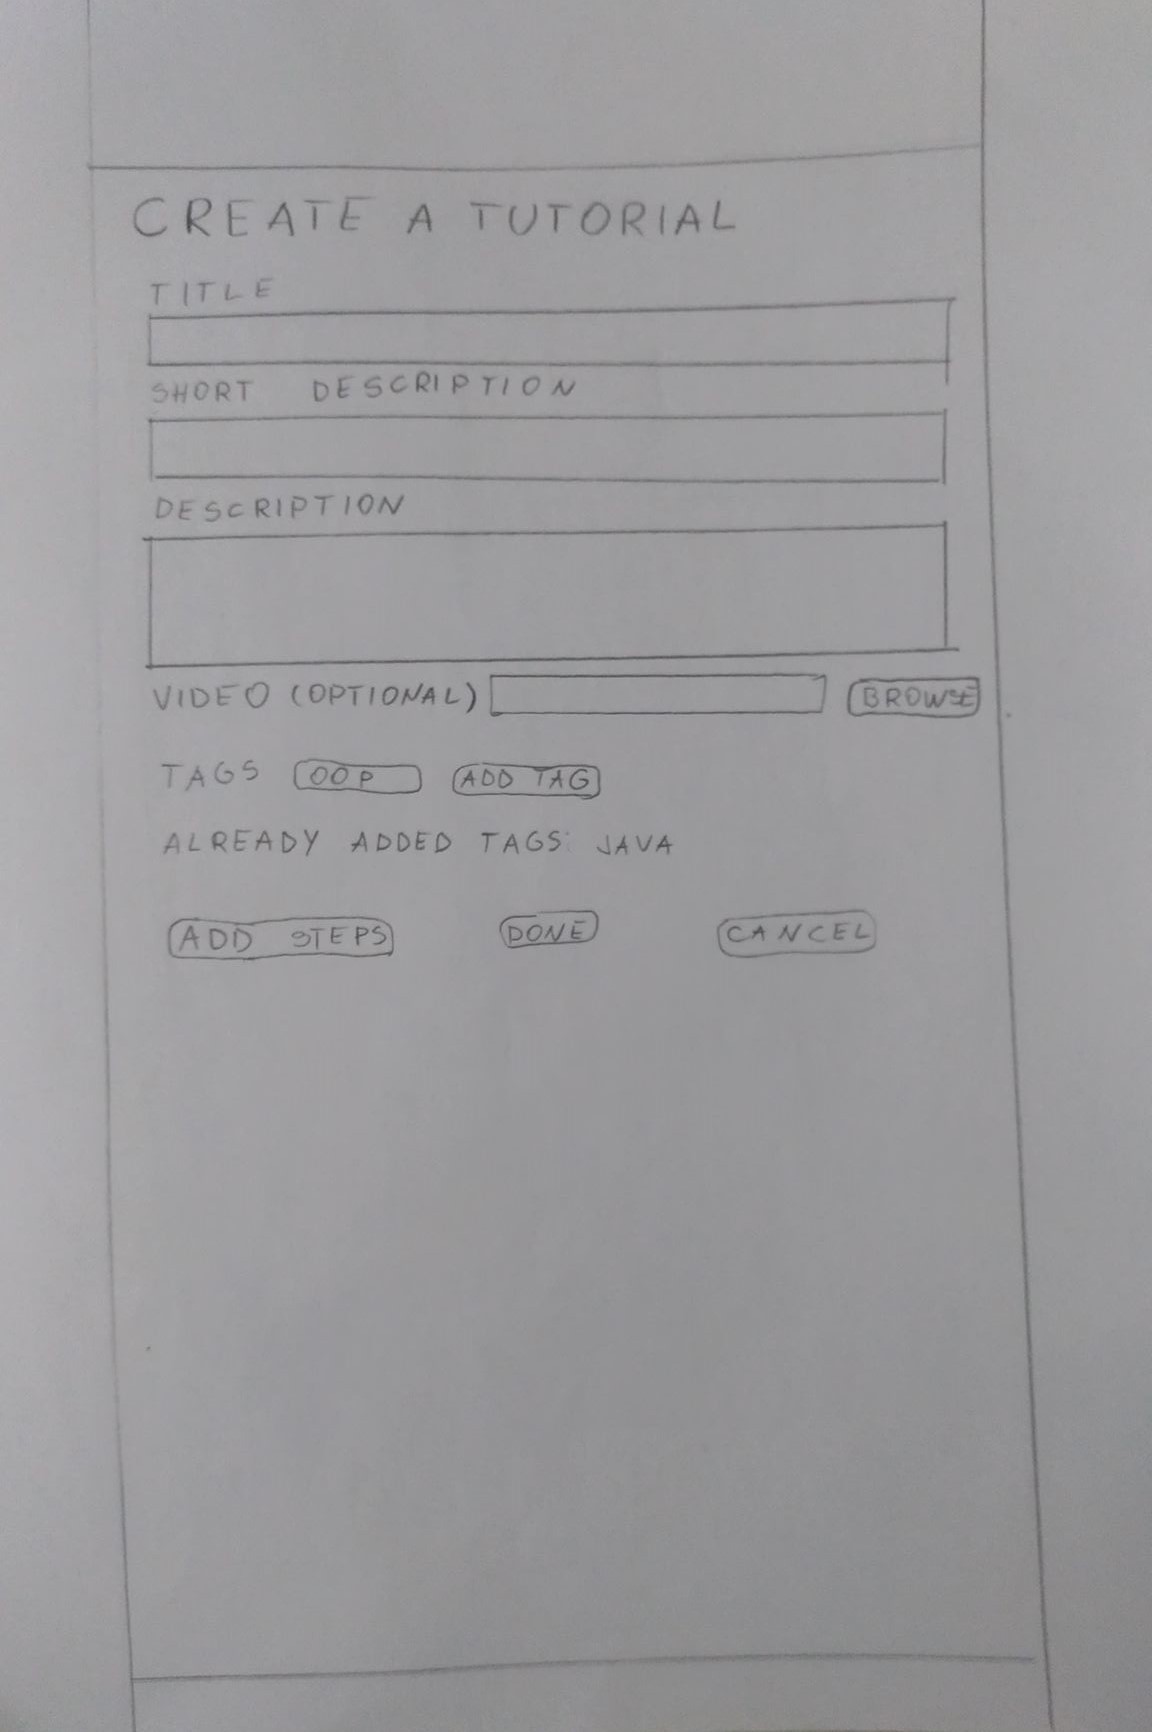 CREATE A TUTORIAL
TITLE
SHORT DESCRIPTION
DESCRIPTION
VIDEO (OPTIONAL) BROWSE
TAGS OOP ADD TAG
ALREADY ADDED TAGS: JAVA
ADD STEPS DONE CANCEL